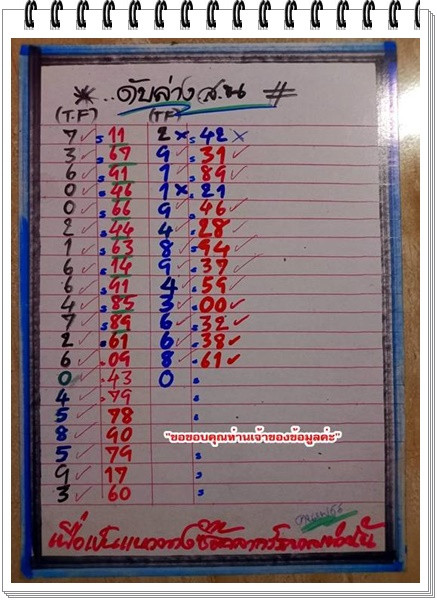 * ..ดับล่าง ส.น #
(T.F) (TF)
7 ✓ . 11 2 × . 42 ×
3 ✓ . 67 9 ✓ . 31 ✓
6 ✓ . 91 1 ✓ . 89 ✓
0 ✓ . 46 1 × . 21
0 ✓ . 66 9 ✓ . 46 ✓
2 ✓ . 44 4 ✓ . 28 ✓
1 ✓ . 63 8 ✓ . 94 ✓
6 ✓ . 14 9 ✓ . 37 ✓
6 ✓ . 91 4 ✓ . 59 ✓
4 ✓ . 85 3 ✓ . 00 ✓
7 ✓ . 89 6 ✓ . 32 ✓
2 ✓ . 61 6 ✓ . 38 ✓
6 ✓ . 09 8 ✓ . 61 ✓
0 ✓ . 43 0 .
4 ✓ . 79 .
5 ✓ 78 .
8 ✓ 90
"ขอขอบคุณท่านเจ้าของข้อมูลค่ะ"
5 ✓ 79 .
9 ✓ 17 .
3 ✓ 60 .
เพื่อเป็นแนวทาง